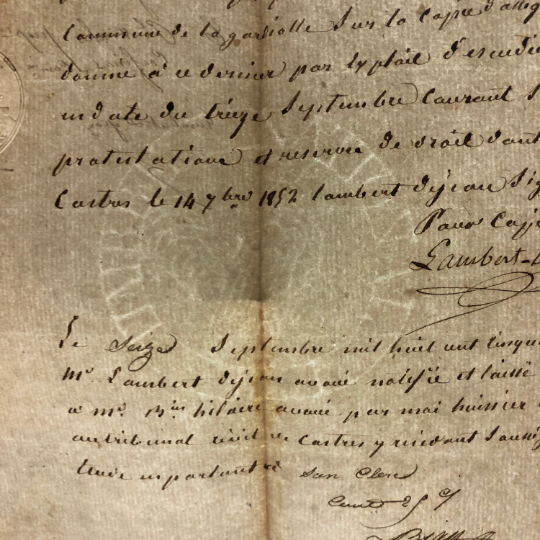 Commune de Lagardiolle sur la Copie d'assig
donné à ce dernier par Exploit d'escudié
en date du treize Septembre Courant
protestations et reserve de droit dont
Castres le 14 7bre 1852 Lambert déjean Sig
Pour Copie
Lambert
Le Seize Septembre mil huit cent Cinqua
Mr Lambert déjean avoué notifié et laissé
a me hilaire avoué par moi huissier
au tribunal civil de Castres y résidant Soussig
parlant a Son Clerc
Cout